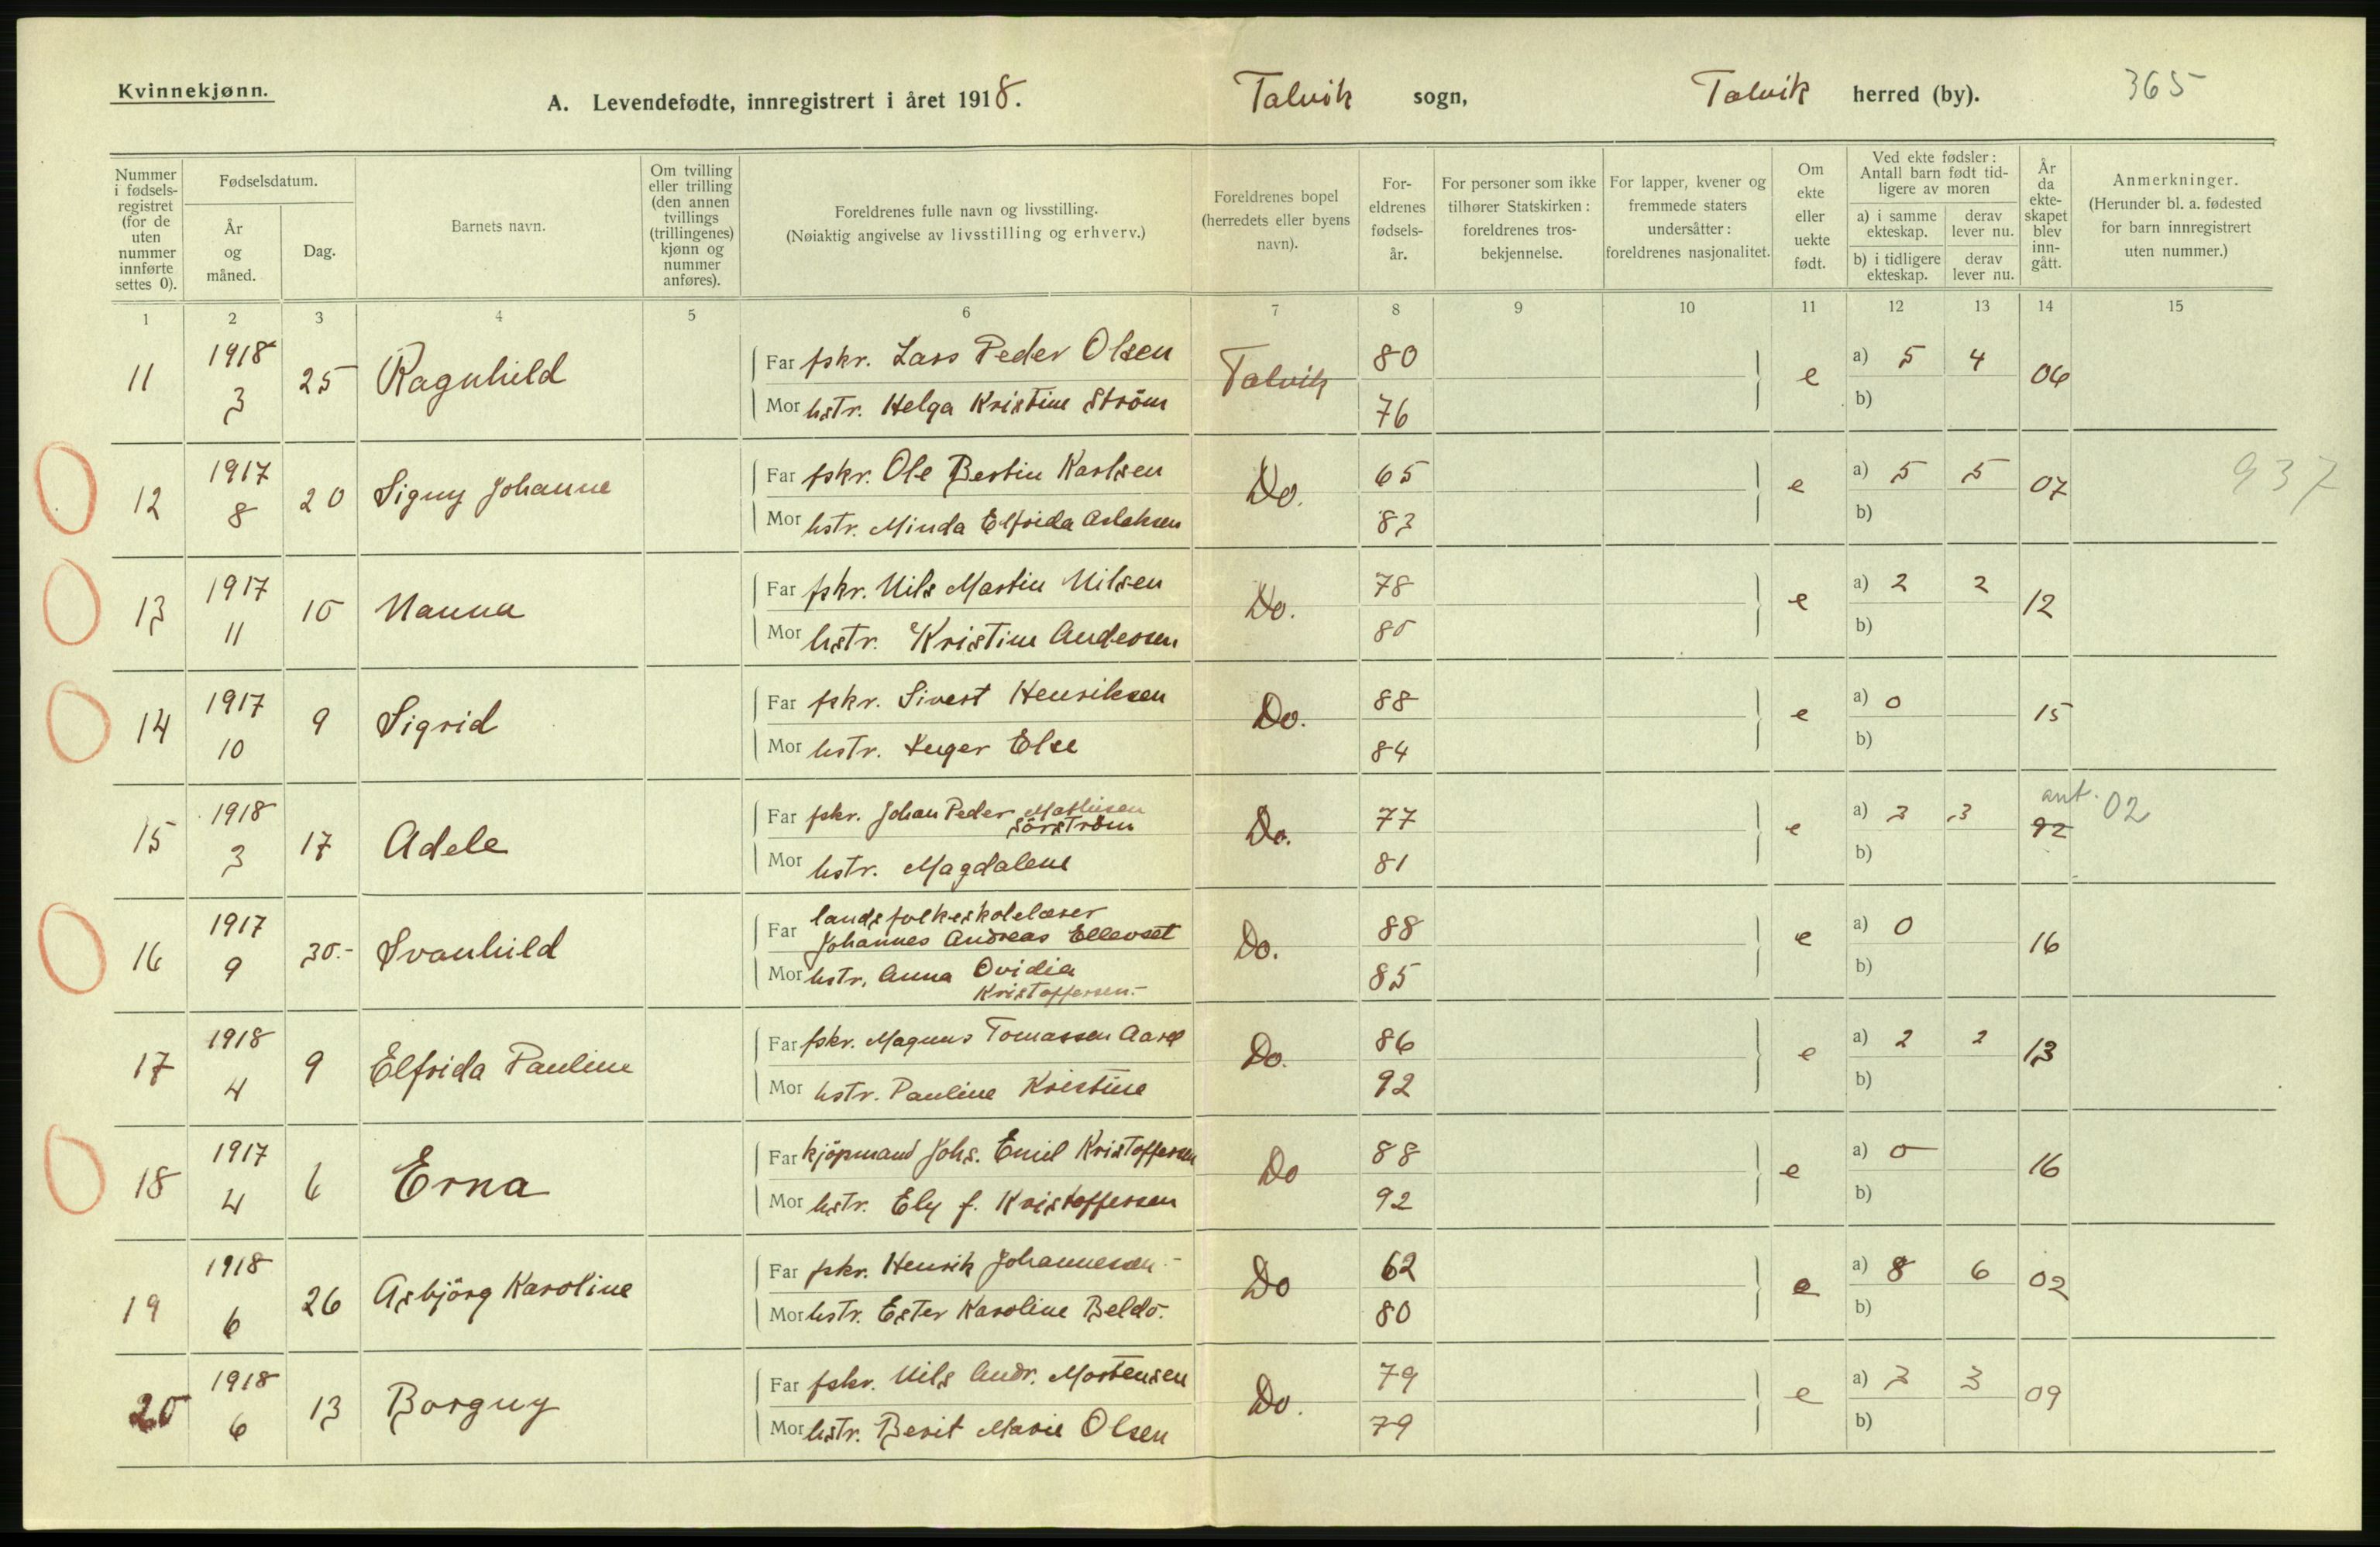 Kvinnekjønn.
A. Levendefødte, innregistrert i året 1918.
Talvik sogn, Talvik herred (by). 365
Nummer i fødsels-registret (for de uten nummer innførte settes 0).
Fødselsdatum.
År og måned.
Dag.
Barnets navn.
Om tvilling eller trilling (den annen tvillings (trillingenes) kjønn og nummer anføres).
Foreldrenes fulle navn og livsstilling.
(Nøiaktig angivelse av livsstilling og erhverv.)
Foreldrenes bopel (herredets eller byens navn).
For-eldrenes fødsels-år.
For personer som ikke tilhører Statskirken: foreldrenes tros-bekjennelse.
For lapper, kvener og fremmede staters undersåtter: foreldrenes nasjonalitet.
Om ekte eller uekte født.
Ved ekte fødsler: Antall barn født tid-ligere av moren
a) i samme ekteskap. derav lever nu.
b) i tidligere ekteskap. derav lever nu.
År da ekte-skapet blev inn-gått.
Anmerkninger.
(Herunder bl. a. fødested for barn innregistrert uten nummer.)
1 2 3 4 5 6 7 8 9 10 11 12 13 14 15
11 1918 3 25 Ragnhild Far fskr. Lars Peder Olsen Talvik 80 e a) 5 4 06
Mor hstr. Helga Kristine Ström 76 b)
12 1917 8 20 Signy Johanne Far fskr. Ole Bertin Karlsen Do. 65 e a) 5 5 07 937
Mor hstr. Minda Elfrida Aslaksen 83 b)
13 1917 11 10 Nanna Far fskr. Nils Martin Nilsen Do. 78 e a) 2 2 12
Mor hstr. Kristine Andersen 80 b)
14 1917 10 9 Sigrid Far fskr. Sivert Henriksen Do. 88 e a) 0 15
Mor hstr. Inger Else 84 b)
15 1918 3 17 Adele Far fskr. Johan Peder Mathisen Sörström Do. 77 e a) 3 3 92 ant. 02
Mor hstr. Magdalene 81 b)
16 1917 9 30.- Svanhild Far landsfolkeskolelærer
Johannes Andreas Ellevset Do. 88 e a) 0 16
Mor hstr. Anna Ovidia Kristoffersen.- 85 b)
17 1918 4 9 Elfrida Pauline Far fskr. Magnus Tomassen Do. 86 e a) 2 2 13
Mor hstr. Pauline Kristine 92 b)
18 1917 4 6 Erna Far kjöpmand Johs. Emil Kristoffersen Do 88 e a) 0 16
Mor hstr. Ely f. Kristoffersen 92 b)
19 1918 6 26 Asbjörg Karoline Far fskr. Henrik Johannesen.- Do 62 e a) 8 6 02
Mor hstr. Ester Karoline Beldo. 80 b)
20 1918 6 13 Borgny Far fskr. Nils Andr. Mortensen Do. 79 e a) 3 3 09
Mor hstr. Berit Marie Olsen 79 b)